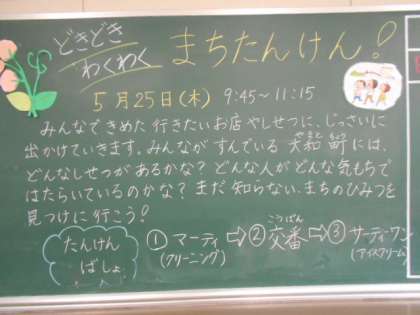 どきどき
わくわく
まちたんけん!
5月25日(木) 9:45~11:15
みんなできめた行きたいお店やしせつに、じっさいに
出かけていきます。みんながすんでいる大和町には、
やまと ちょう
どんなしせつがあるかな?どんな人がどんな気もちで
はたらいているのかな?まだ知らない、まちのひみつを
見つけに行こう!
たんけん
ばしょ
①マーティ⇨②交番⇨③サーティワン
(クリーニング)
こうばん
(アイスクリーム)